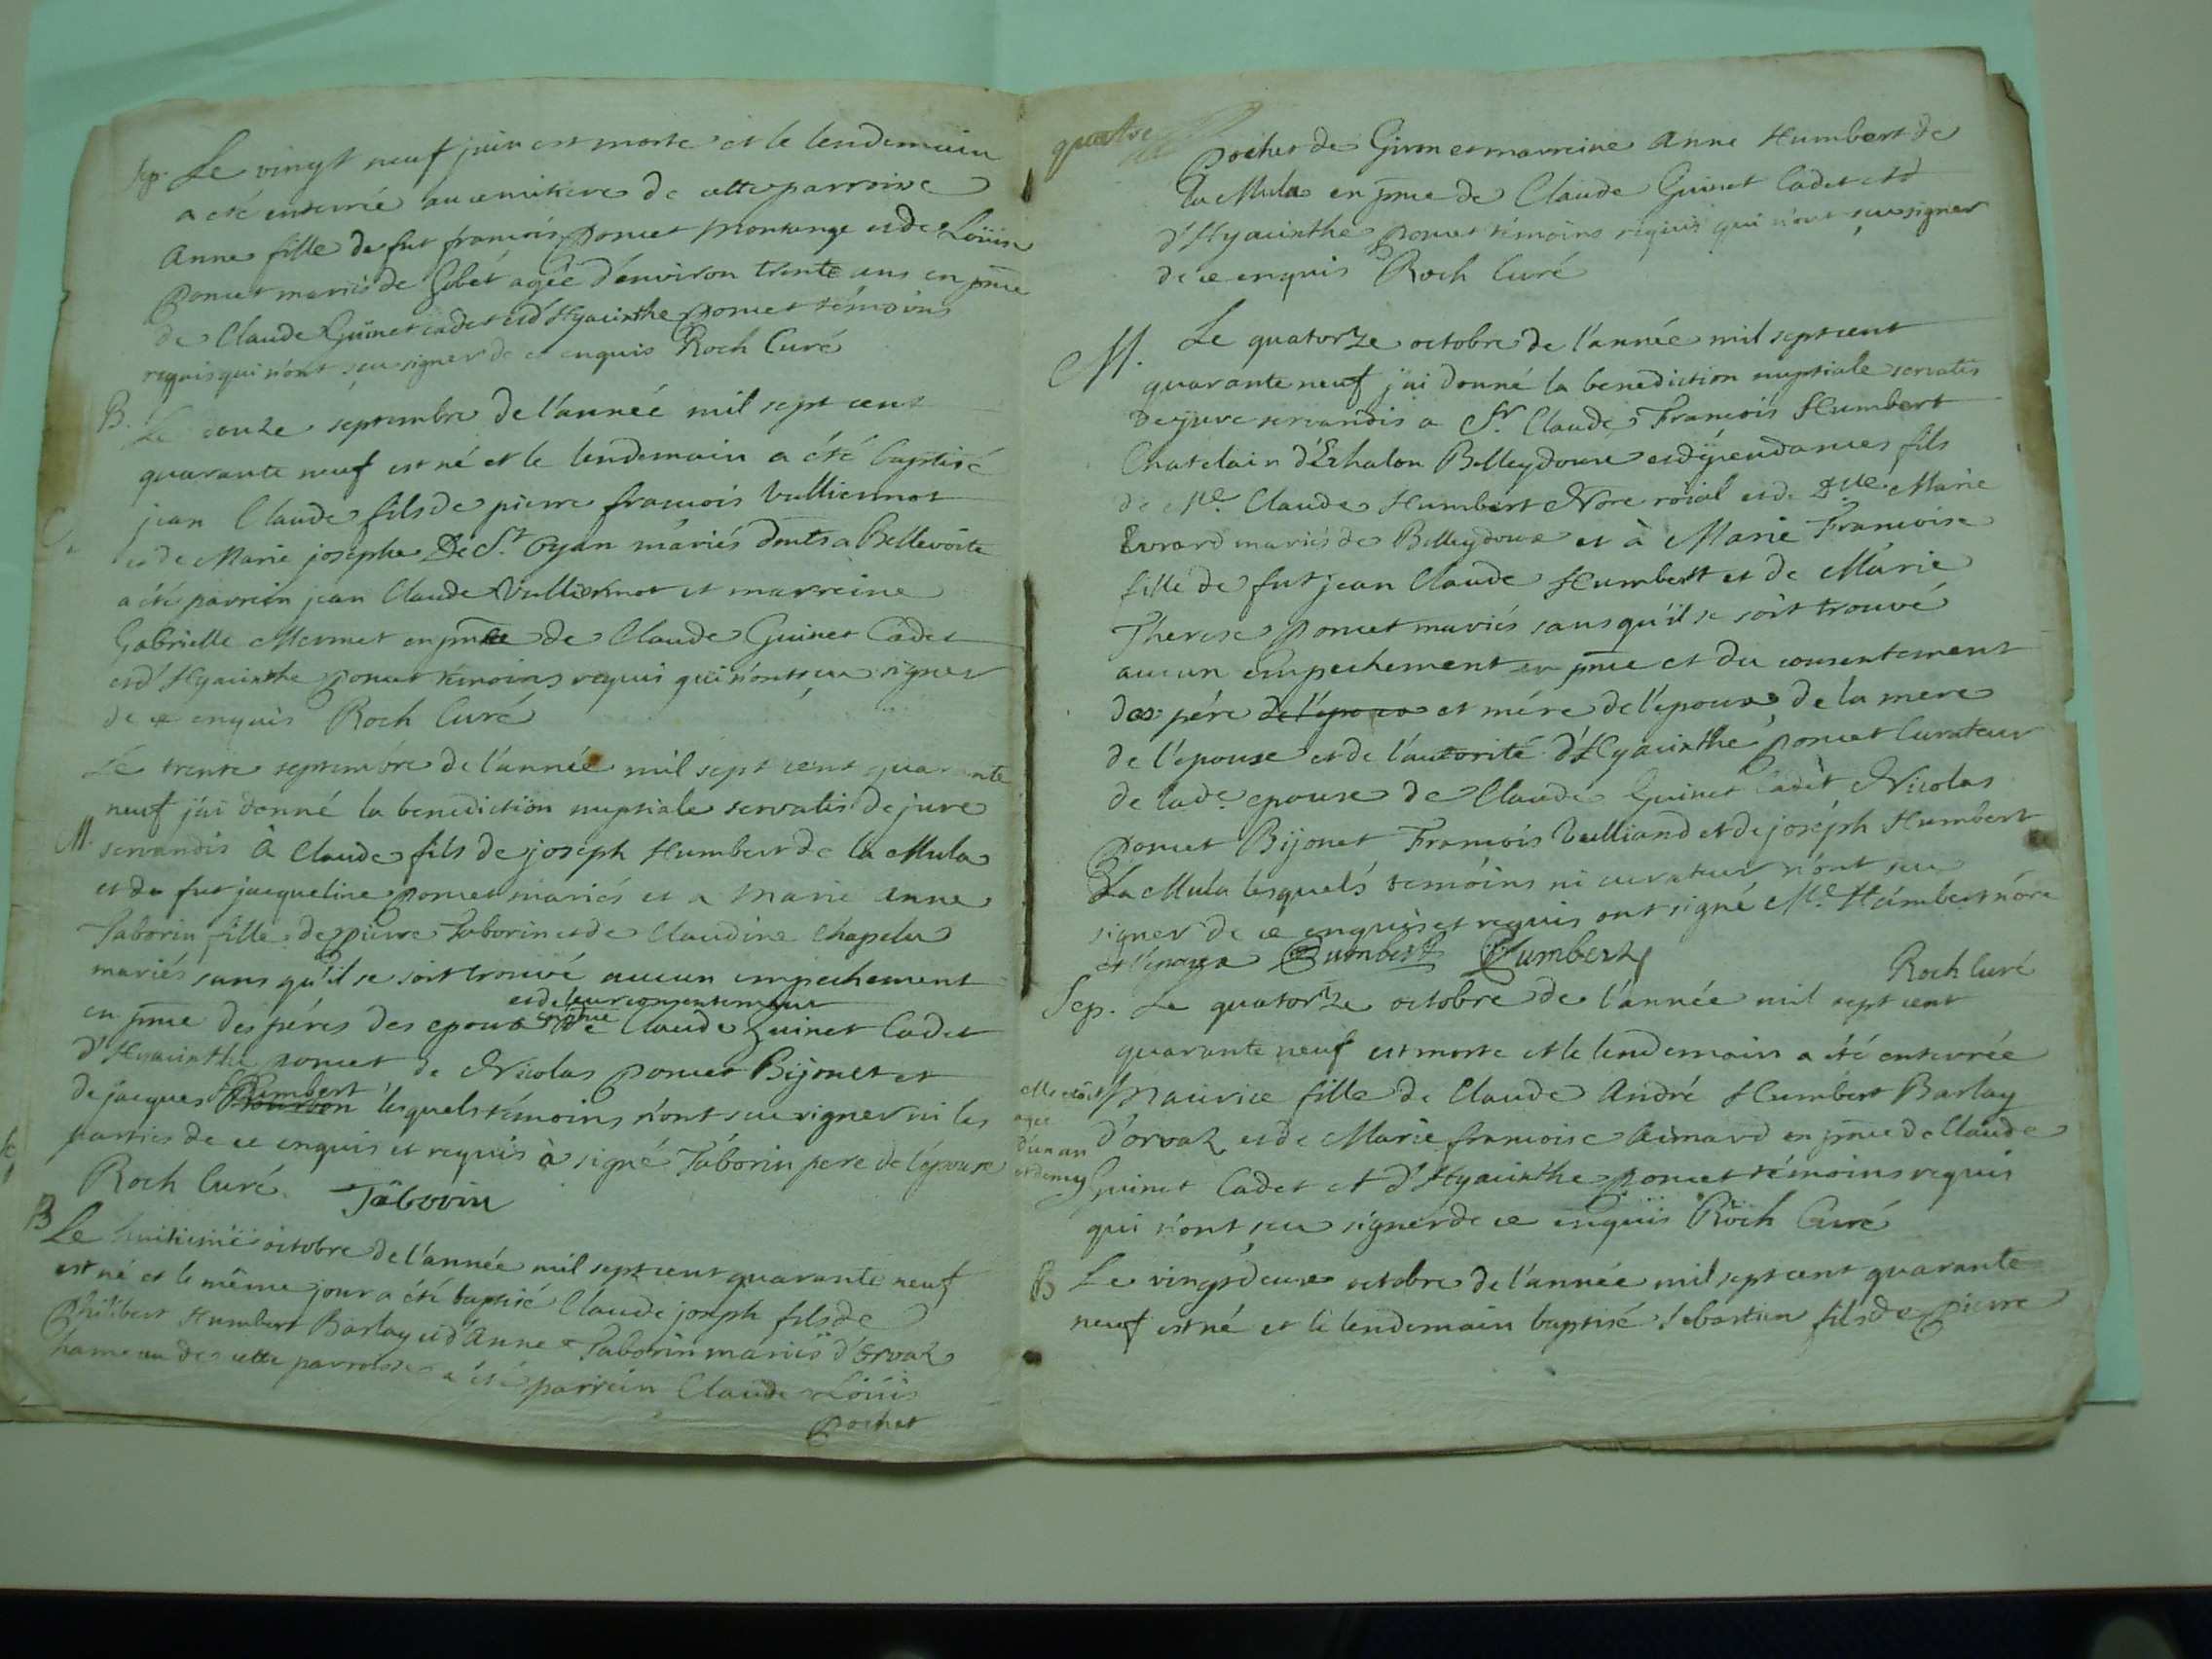 Sep. Le vingt neuf juin est morte et le lendemain
a eté enterrée au cemitiere de cette parroisse
Anne fille de fut francois poncet montange et de Loüise
poncet mariés de Gobet agée d'environ trente ans en pnce
de Claude Guinet cadet et d'Hyacinthe poncet témoins
requis qui n'ont sçu signer de ce enquis Roch Curé
B. Le douze septembre de l'année mil sept cent
quarante neuf est né et le lendemain a été baptisé
jean Claude fils de pierre francois Vulliermot
et de Marie josephe De St. Oyan mariés dmts a Bellevoite
a été parrein jean Claude Vulliermot et marreine
Gabrielle Mermet en pnce de Claude Guinet Cadet
et d'Hyacinthe poncet témoins requis qui n'ont sçu signer
de ce enquis Roch Curé
Le trente septembre de l'année mil sept cent quarante
neuf j'ai donné la benediction nuptiale servatis de jure
M. servandis à Claude fils de joseph Humbert de la Mula
et de fut jacqueline poncet mariés et a Marie Anne
Taborin fille de pierre Taborin et de Claudine Chapelu
mariés sans qu'il se soit trouvé aucun empechement
et de leur consentement
en pnce des péres des epoux en pnce de Claude Guinet Cadet
d'Hyacinthe poncet de Nicolas poncet Bijonet et
de jacques Humbert lesquels témoins n'ont scu signer ni les
parties de ce enquis et requis à signé Taborin pere de l'épouse
Roch Curé. Taborin
B Le huitieme octobre de l'année mil sept cent quarante neuf
est né et le même jour a été baptisé Claude joseph fils de
Philibert Humbert Barlay et d'Anne Taborin mariés d'Orvaz
hameau de cette parroisse a été parrein Claude Loüis
pochet
quatre
pochet de Giron et marreine Anne Humbert de
La Mula en pnce de Claude Guinet Cadet et
d'Hyacinthe poncet témoins requis qui n'ont sçu signer
de ce enquis Roch Curé
M. Le quatorze octobre de l'année mil sept cent
quarante neuf j'ai donné la benediction nuptiale servatis
de jure servandis a Sr. Claude Francois Humbert
Chatelain d'Echalon Belleydoux et dépendances fils
de Me. Claude Humbert Nore roial et de Dlle Marie
Evrard mariés de Belleydoux et à Marie Francoise
fille de fut jean Claude Humbert et de Marie
Therese poncet mariés sans qu'il se soit trouvé
aucun empechement en pnce et du consentement
des pére de l'epoux et mére de l'epoux, de la mere
de l'epouse et de l'autorité d'Hyacinthe poncet Curateur
de lade. epouse de Claude Guinet Cadet Nicolas
poncet Bijonet Francois Vulliand et de joséph Humbert
La Mula lesquels témoins ni curateur n'ont scu
signer de ce enquis et requis ont signé Me. Humbert nore
et l'epoux Humbert Humbert
Roch Curé
Sep. Le quatorze octobre de l'année mil sept cent
quarante neuf est morte et le lendemain a été enterrée
elle etoit Maurice fille de Claude André Humbert Barlay
agee
d'un an d'orvaz et de Marie francoise Aimard en pnce de Claude
et demy Guinet Cadet et d'Hyacinthe poncet témoins requis
qui n'ont scu signer de ce enquis Roch Curé
B Le vingt deux octobre de l'année mil sept cent quarante
neuf est né et le lendemain baptisé Sebastien fils de pierre